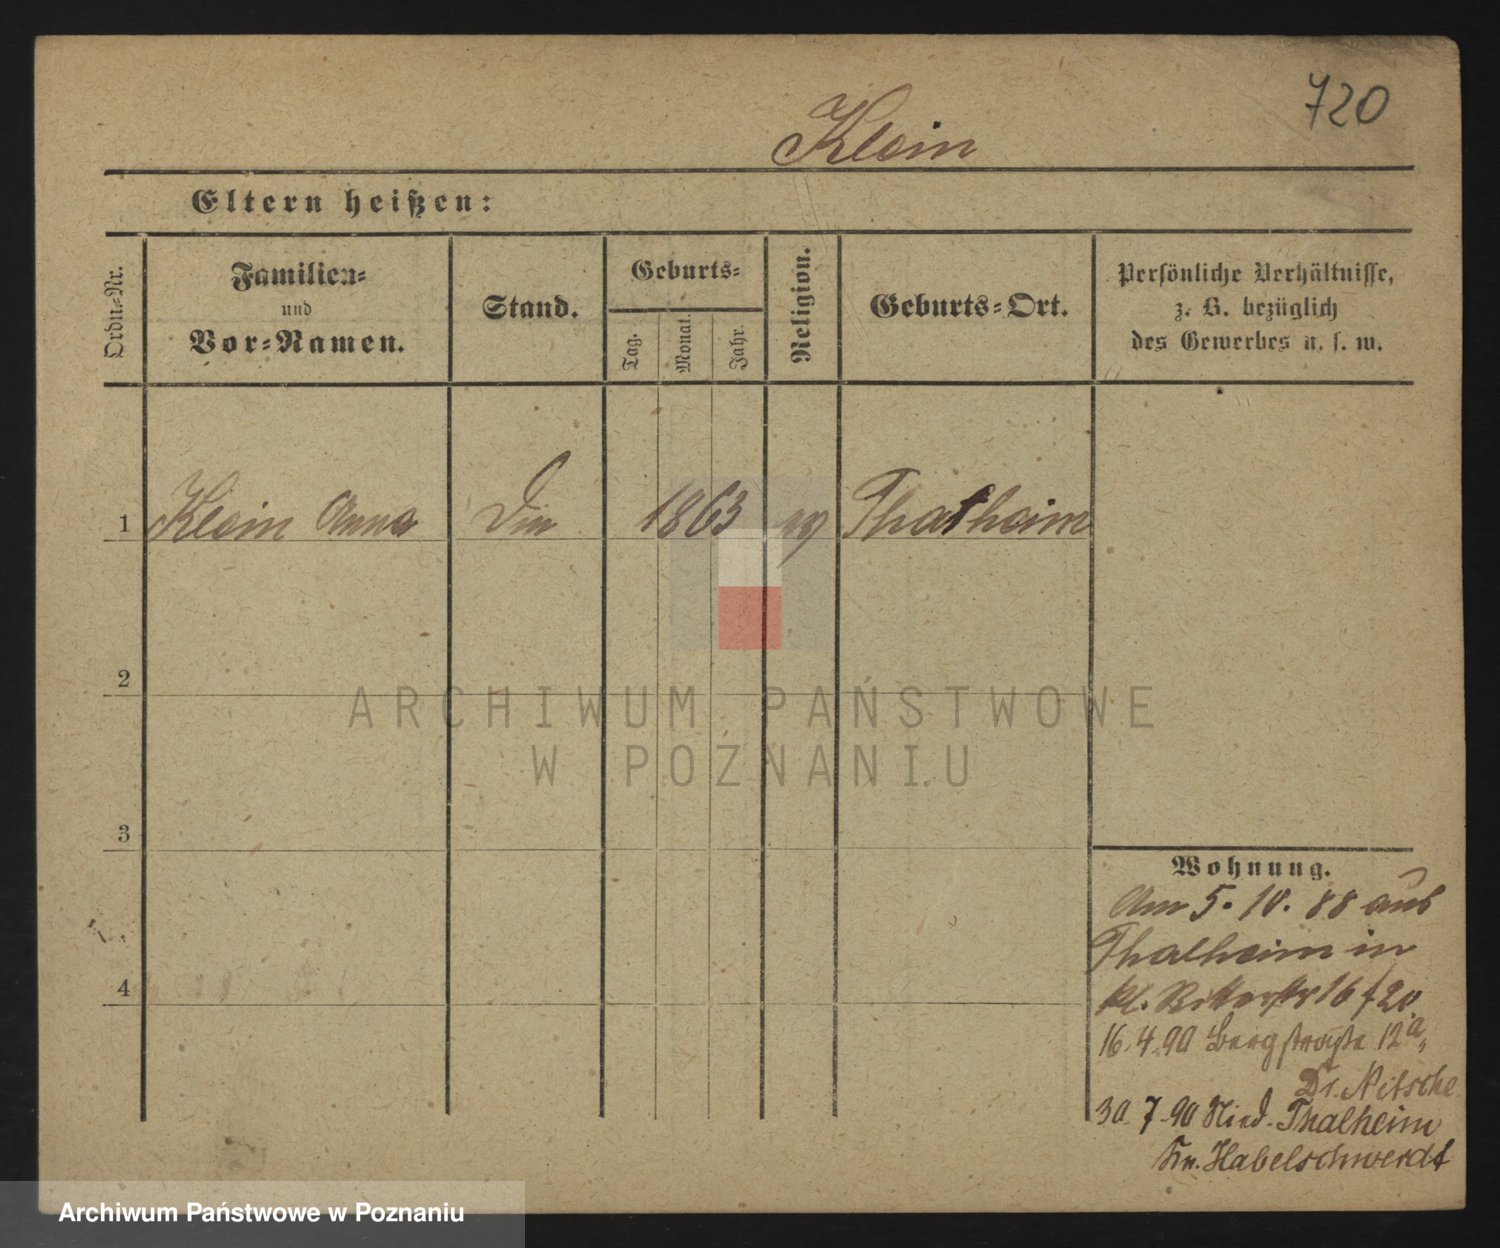 720
Klein
Eltern heißen:
Ordn.-Nr.
Familien-
und
Vor-Namen.
Stand.
Geburts-
Tag.
Monat.
Jahr.
Religion.
Geburts-Ort.
Persönliche Verhältnisse,
z. B. bezüglich
des Gewerbes u. s. w.
1 Klein Anna 1863 Thalheim
2
ARCHIWUM PAŃSTWOWE
W POZNANIU
3
Wohnung.
Am 5. 10. 88 aus
Thalheim in
kl. Ritterstr 16 f 20.
4
16. 4. 90 Bergstraße 12a,
Dr. Nitsche
30. 7. 90 Nied. Thalheim
Kr. Habelschwerdt
Archiwum Państwowe w Poznaniu